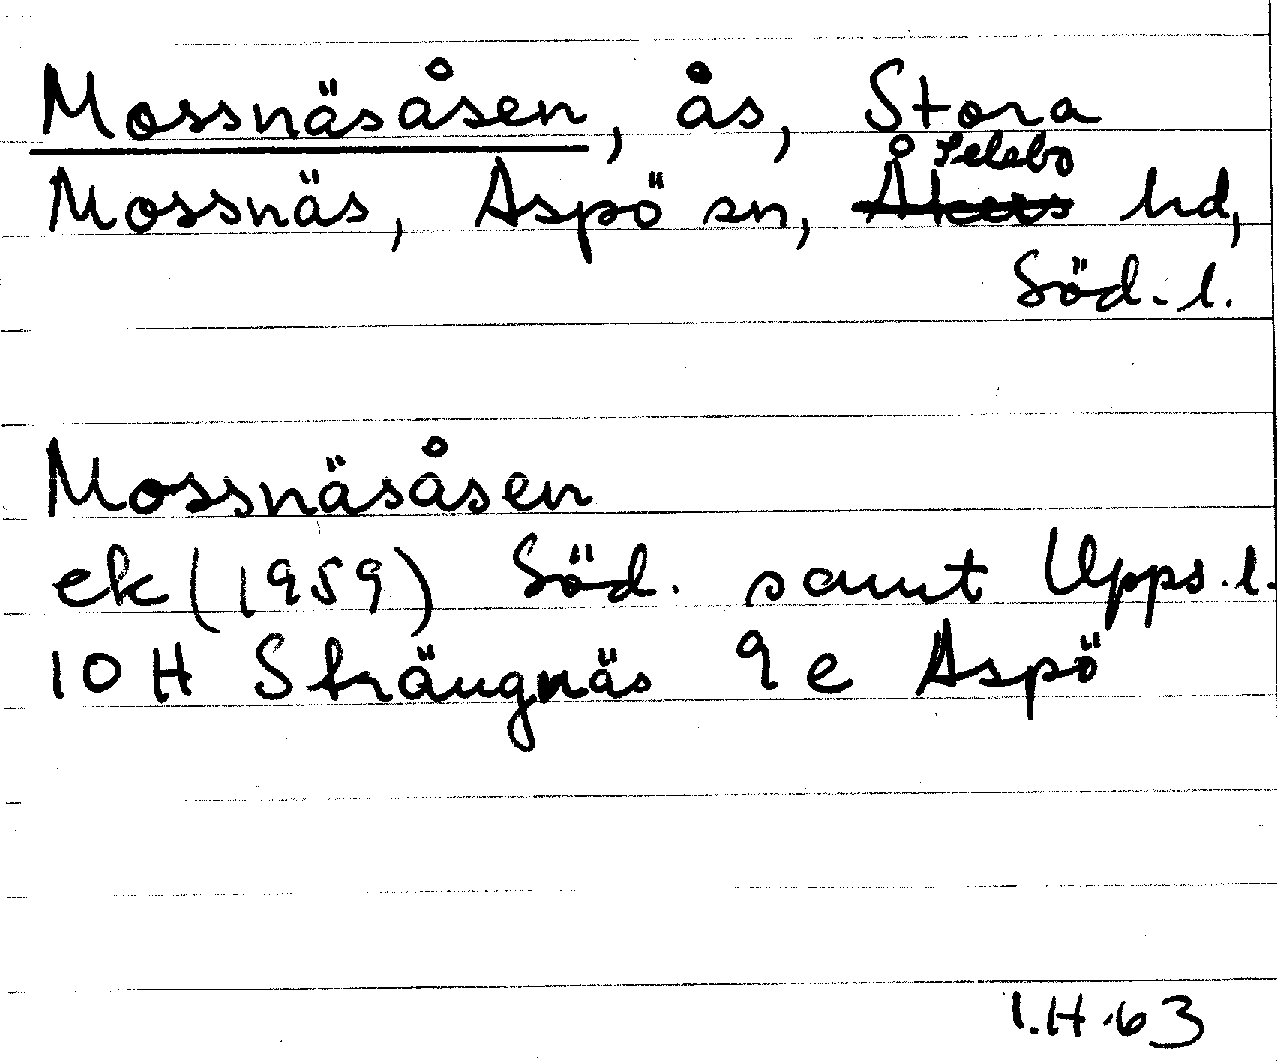 Mossnäsåsen, ås, Stora
Selebo
Mossnäs, Aspö sn, Åkers hd,
Söd. l.
Mossnäsåsen
ek (1959) Söd. samt Upps. l.
10 H Strängnäs 9 e Aspö
I.H. 63